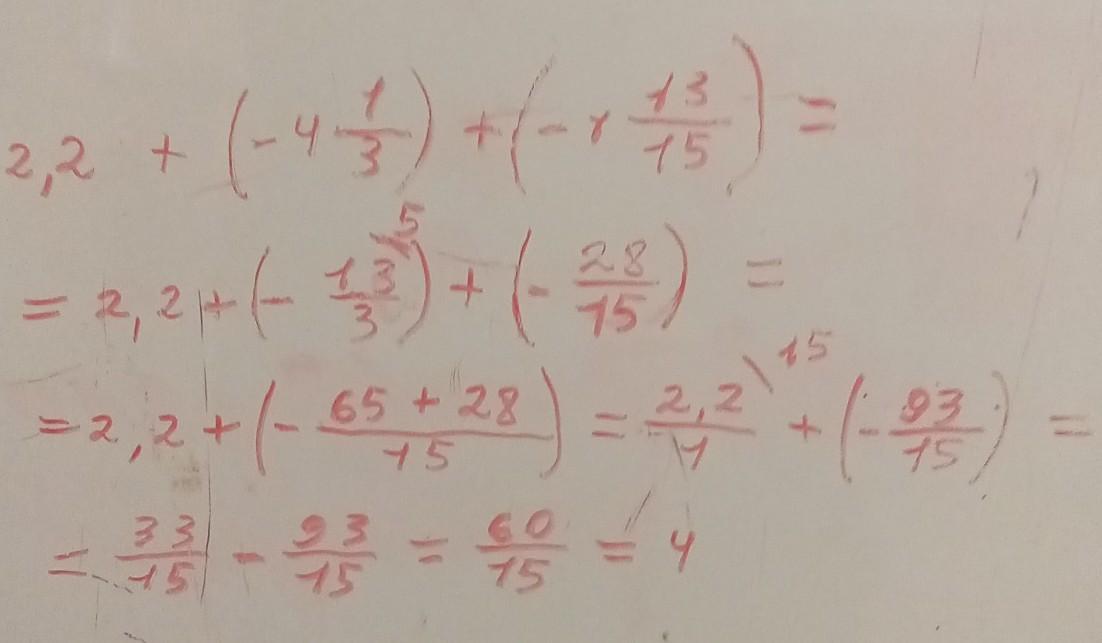 2,2 + (-4 1/3) + (-1 13/15) =
= 2,2 + (- 13/3 \5) + (- 28/15) =
= 2,2 + (- (65 + 28)/15) = 2,2/1 \15 + (- 93/15) =
= 33/15 - 93/15 = 60/15 = 4